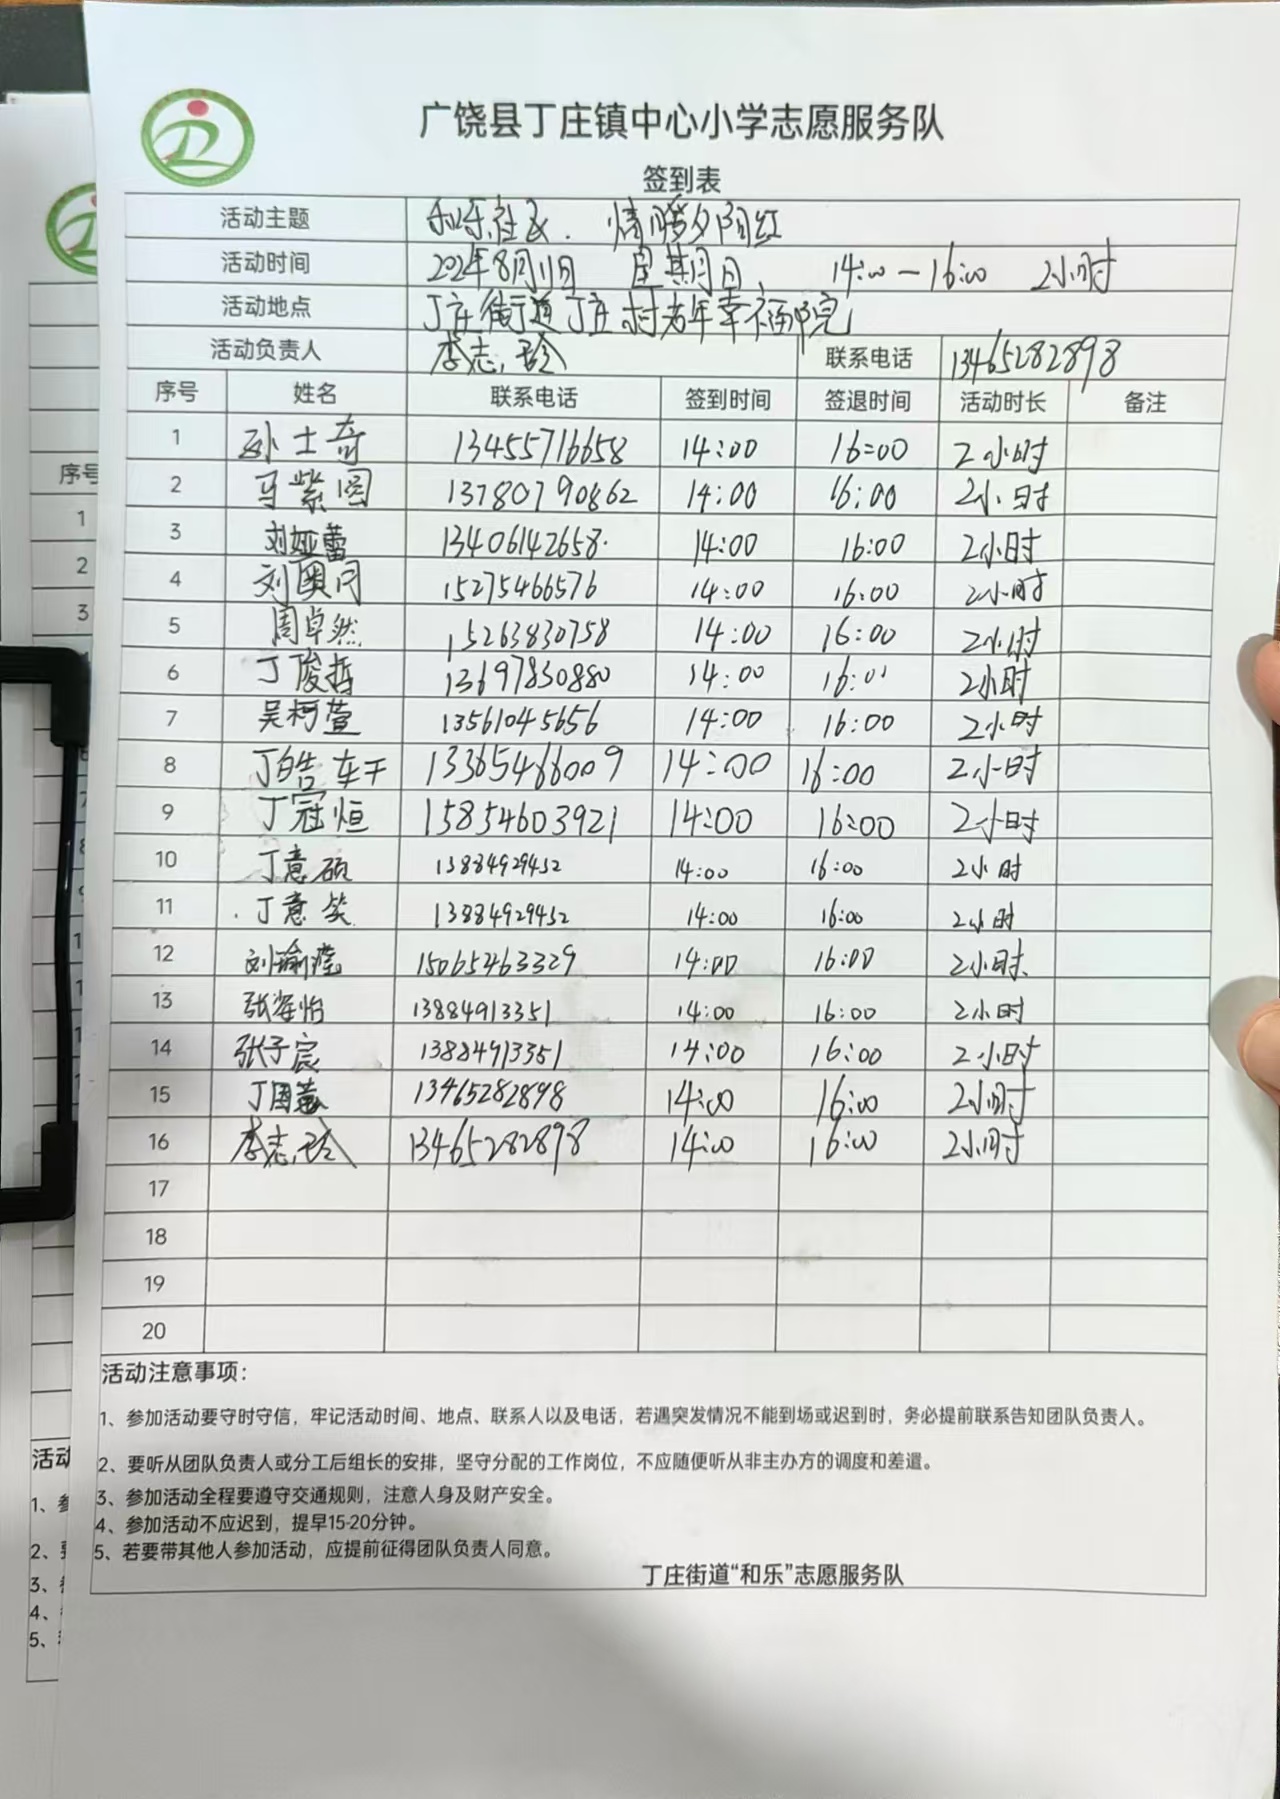 广饶县丁庄镇中心小学志愿服务队
签到表
活动主题 和乐社区. 情暖夕阳红
活动时间 2024年8月11日 星期日, 14:00-16:00 2小时
活动地点 丁庄街道丁庄村老年幸福院
活动负责人 李志玲 联系电话 13465282898
序号 姓名 联系电话 签到时间 签退时间 活动时长 备注
1 孙士奇 13455716658 14:00 16:00 2小时
2 马紫图 13780790862 14:00 16:00 2小时
3 刘娅蕾 13406142658. 14:00 16:00 2小时
4 刘奥同 15275466576 14:00 16:00 2小时
5 周卓然 15263830758 14:00 16:00 2小时
6 丁俊哲 13697830880 14:00 16:01 2小时
7 吴柯萱 13561045656 14:00 16:00 2小时
8 丁皓轩 13365466009 14:00 16:00 2小时
9 丁冠恒 15854603921 14:00 16:00 2小时
10 丁意硕 13884929452 14:00 16:00 2小时
11 丁意笑 13884929452 14:00 16:00 2小时
12 刘瑜滢 15065463329 14:00 16:00 2小时
13 张姿怡 13884913351 14:00 16:00 2小时
14 张子宸 13884913351 14:00 16:00 2小时
15 丁国 13465282898 14:00 16:00 2小时
16 李志玲 13465282898 14:00 16:00 2小时
17
18
19
20
活动注意事项：
1、参加活动要守时守信，牢记活动时间、地点、联系人以及电话，若遇突发情况不能到场或迟到时，务必提前联系告知团队负责人。
2、要听从团队负责人或分工后组长的安排，坚守分配的工作岗位，不应随便听从非主办方的调度和差遣。
3、参加活动全程要遵守交通规则，注意人身及财产安全。
4、参加活动不应迟到，提早15-20分钟。
5、若要带其他人参加活动，应提前征得团队负责人同意。
丁庄街道“和乐”志愿服务队
序号
1
2
3
活动
1、参
2、要
3、
4、
5、